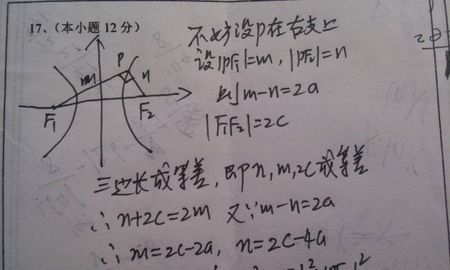 17、(本小题12分)
不妨设P在右支上
设|PF₁|=m, |PF₂|=n
则 m-n=2a
|F₁F₂|=2c
P
m
n
F₁
F₂
三边长成等差, 即n, m, 2c成等差
∴ n+2c=2m 又∵m-n=2a
∴ m=2c-2a, n=2c-4a